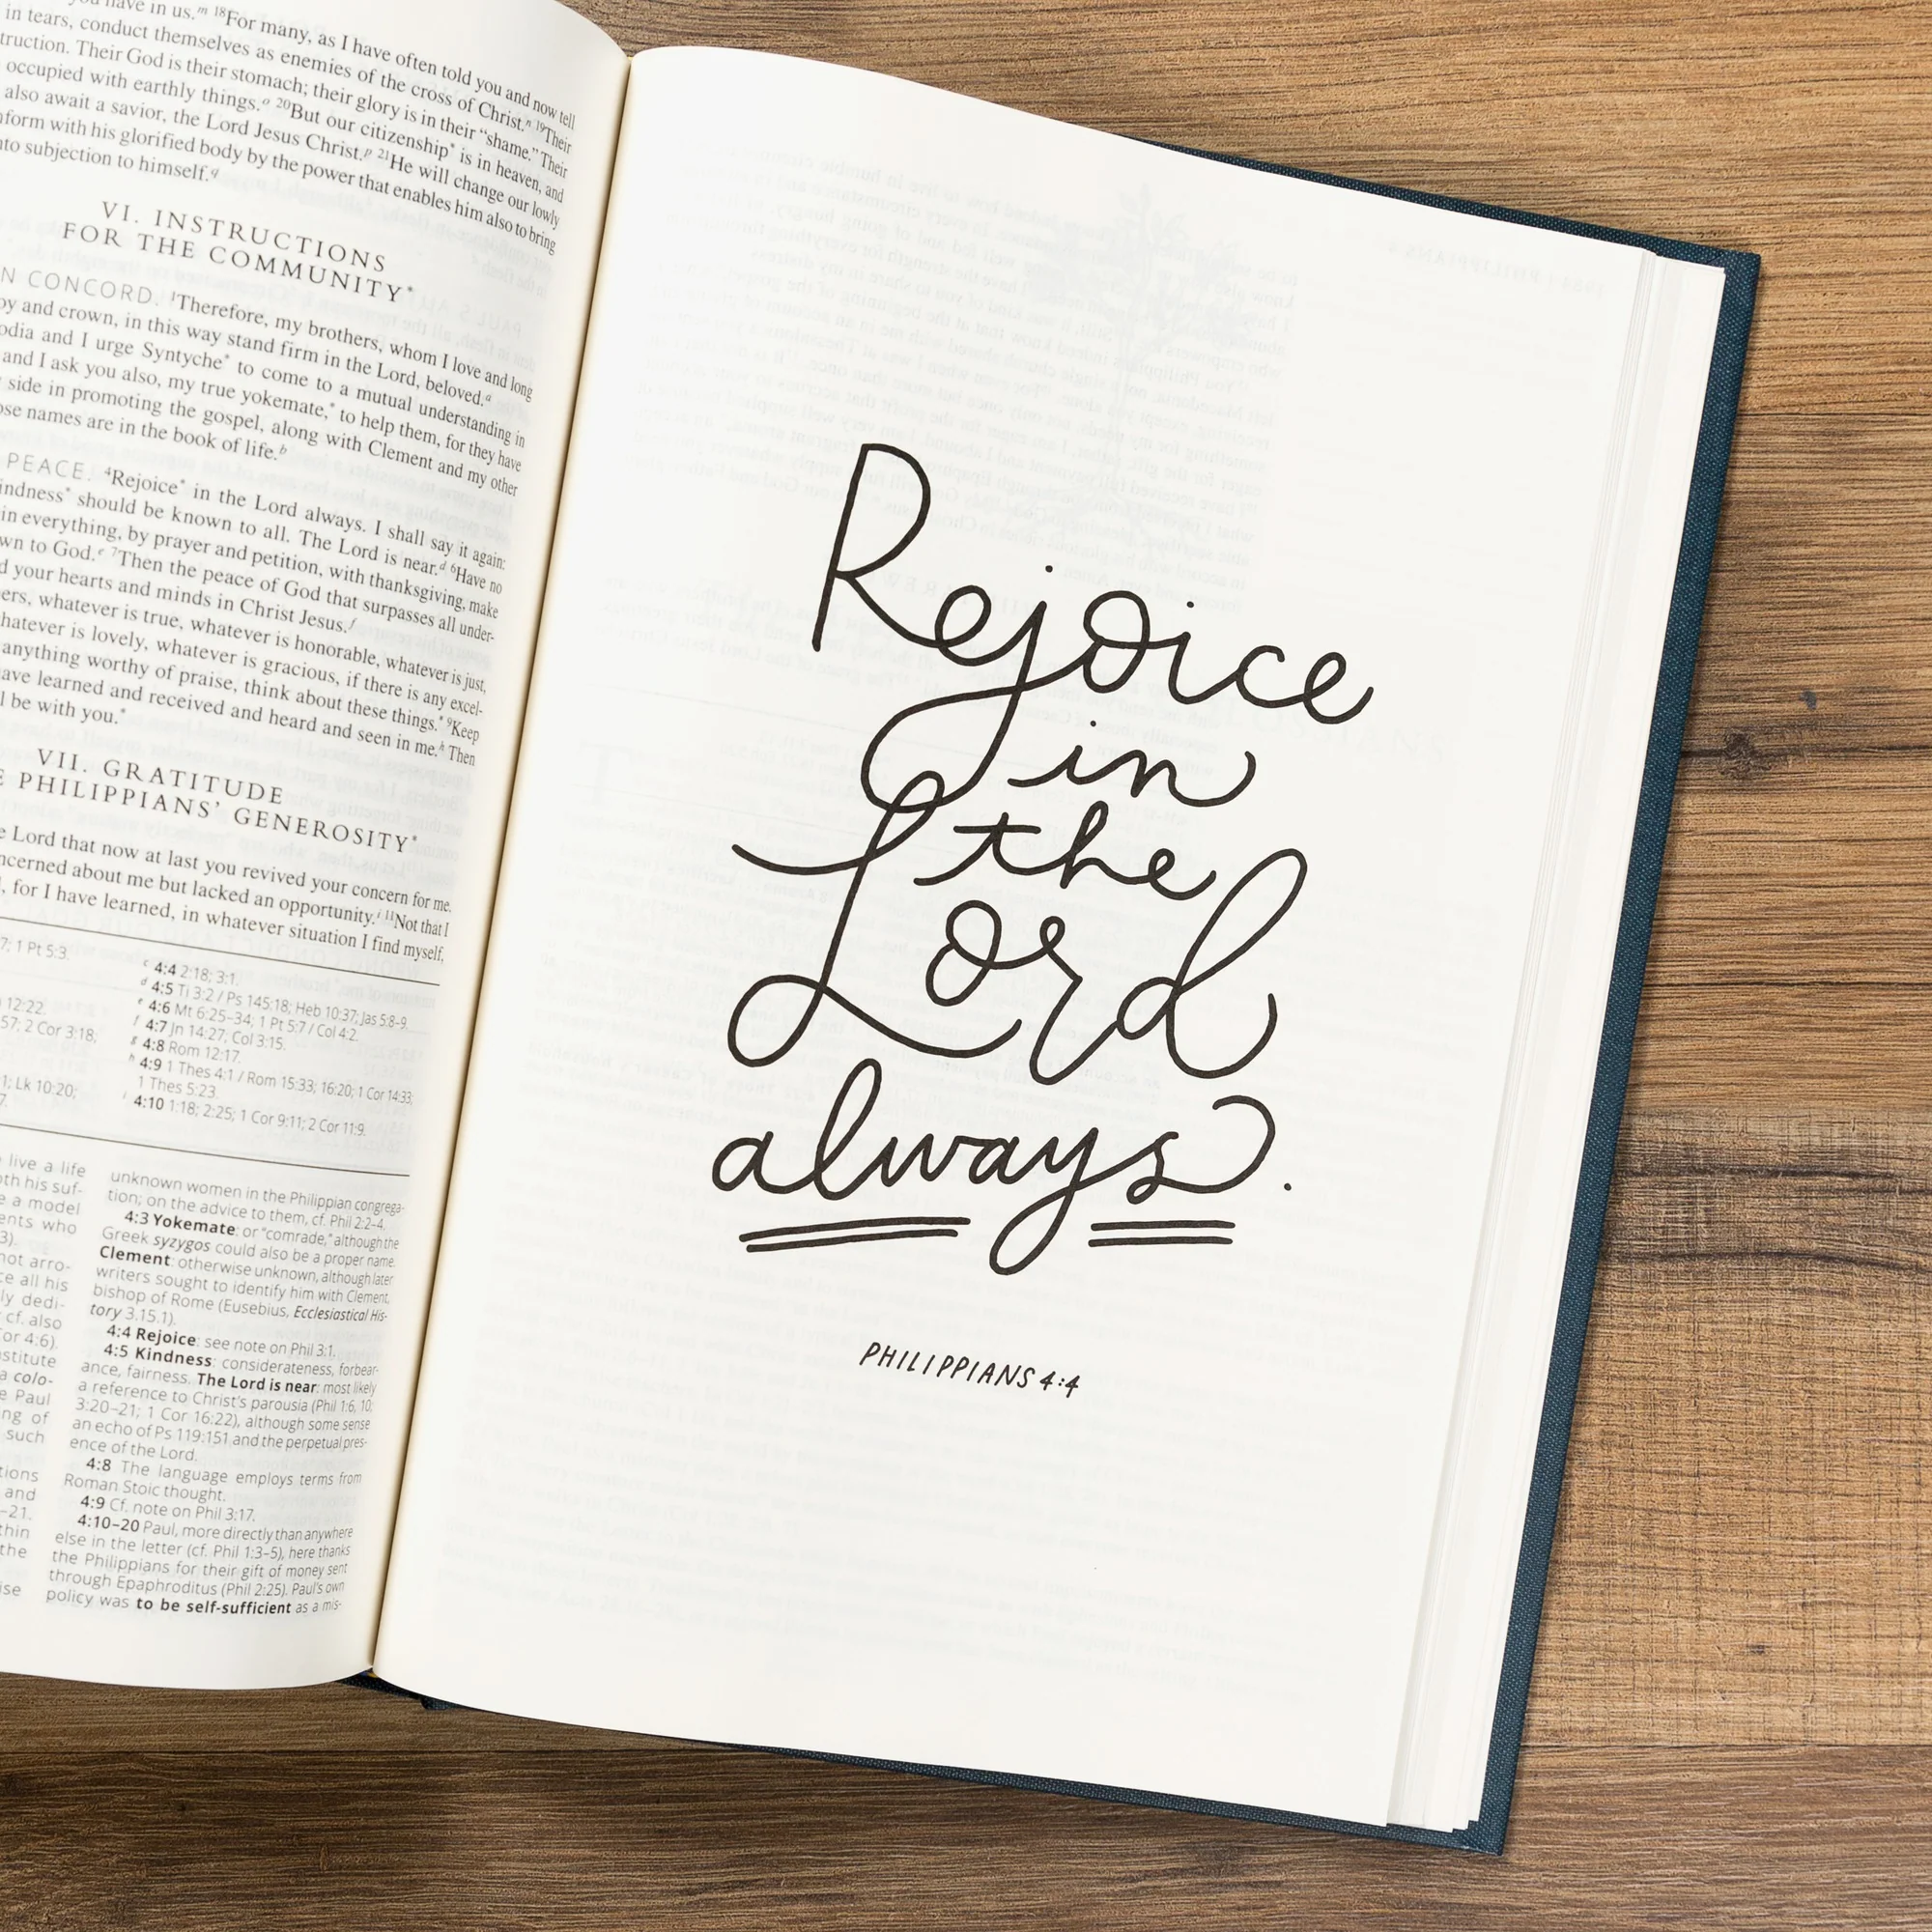 you have in us.ᵐ ¹⁸For many, as I have often told you and now tell
in tears, conduct themselves as enemies of the cross of Christ.ⁿ ¹⁹Their
truction. Their God is their stomach; their glory is in their “shame.” Their
occupied with earthly things.ᵒ ²⁰But our citizenship* is in heaven, and
also await a savior, the Lord Jesus Christ.ᵖ ²¹He will change our lowly
nform with his glorified body by the power that enables him also to bring
nto subjection to himself.q
VI. INSTRUCTIONS
FOR THE COMMUNITY*
N CONCORD. ¹Therefore, my brothers, whom I love and long
oy and crown, in this way stand firm in the Lord, beloved.ᵃ
odia and I urge Syntyche* to come to a mutual understanding in
and I ask you also, my true yokemate,* to help them, for they have
side in promoting the gospel, along with Clement and my other
ose names are in the book of life.ᵇ
PEACE. ⁴Rejoice* in the Lord always. I shall say it again:
indness* should be known to all. The Lord is near.ᵈ ⁶Have no
in everything, by prayer and petition, with thanksgiving, make
wn to God.ᵉ ⁷Then the peace of God that surpasses all under-
d your hearts and minds in Christ Jesus.ᶠ
ers, whatever is true, whatever is honorable, whatever is just,
hatever is lovely, whatever is gracious, if there is any excel-
anything worthy of praise, think about these things.* ⁹Keep
ave learned and received and heard and seen in me.ʰ Then
l be with you.*
VII. GRATITUDE
E PHILIPPIANS’ GENEROSITY*
e Lord that now at last you revived your concern for me.
ncerned about me but lacked an opportunity.ⁱ ¹¹Not that I
, for I have learned, in whatever situation I find myself,
7; 1 Pt 5:3.
12:22.
57; 2 Cor 3:18;
1; Lk 10:20;
7.
ᶜ 4:4 2:18; 3:1.
ᵈ 4:5 Ti 3:2 / Ps 145:18; Heb 10:37; Jas 5:8–9.
ᵉ 4:6 Mt 6:25–34; 1 Pt 5:7 / Col 4:2.
ᶠ 4:7 Jn 14:27; Col 3:15.
ᵍ 4:8 Rom 12:17.
ʰ 4:9 1 Thes 4:1 / Rom 15:33; 16:20; 1 Cor 14:33;
1 Thes 5:23.
ⁱ 4:10 1:18; 2:25; 1 Cor 9:11; 2 Cor 11:9.
live a life
oth his suf-
e a model
ents who
3).
not arro-
ce all his
ly dedi-
cf. also
or 4:6).
stitute
a colo-
e Paul
ng of
such
tions
and
–21.
thin
the
ise
unknown women in the Philippian congrega-
tion; on the advice to them, cf. Phil 2:2–4.
4:3 Yokemate: or “comrade,” although the
Greek syzygos could also be a proper name.
Clement: otherwise unknown, although later
writers sought to identify him with Clement,
bishop of Rome (Eusebius, Ecclesiastical His-
tory 3.15.1).
4:4 Rejoice: see note on Phil 3:1.
4:5 Kindness: considerateness, forbear-
ance, fairness. The Lord is near: most likely
a reference to Christ’s parousia (Phil 1:6, 10;
3:20–21; 1 Cor 16:22), although some sense
an echo of Ps 119:151 and the perpetual pres-
ence of the Lord.
4:8 The language employs terms from
Roman Stoic thought.
4:9 Cf. note on Phil 3:17.
4:10–20 Paul, more directly than anywhere
else in the letter (cf. Phil 1:3–5), here thanks
the Philippians for their gift of money sent
through Epaphroditus (Phil 2:25). Paul’s own
policy was to be self-sufficient as a mis-
Rejoice
in
the
Lord
always.
PHILIPPIANS 4:4